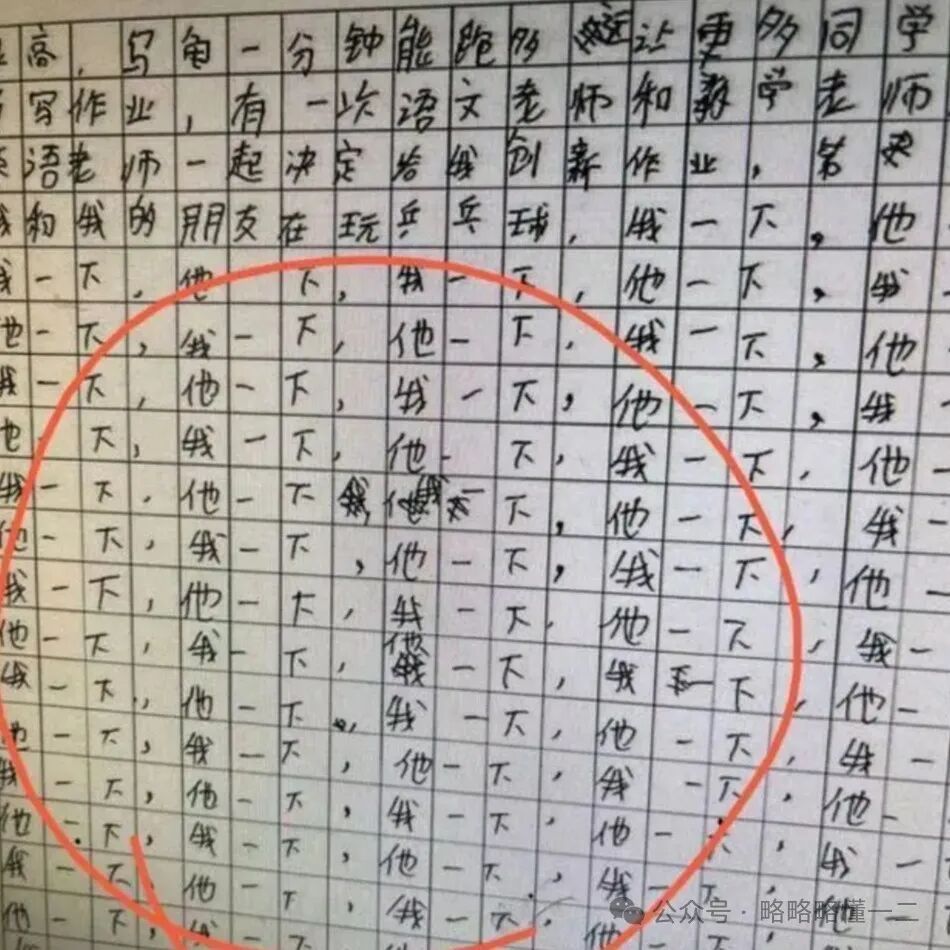 高,写龟一分钟能跑多远让更多同学
写作业,有一次语文老师和数学老师
语老师一起决定给我创新作业,第天
我和我的朋友在玩乒乓球,我一下,他一
我一下,他一下,我一下,他一下,我一
他一下,我一下,他一下,我一下,他一
我一下,他一下,我一下,他一下,我一
他一下,我一下,他一下,我一下,他一
我一下,他一下 下,他一下,我一
他一下,我一下,他一下,我一下,他一
我一下,他一下,我一下,他一下,我一
他一下,我一下,他一下,我一下,他一
我一下,他一下,我一下,他一下,我一
他一下,我一下,他一下,我一下,他一
我一下,他一下,我一下,他一下,我一
他一下,我一下,他一下,我一下,他一
我一下,他一下,我一下,他一
公众号·略略略懂一二